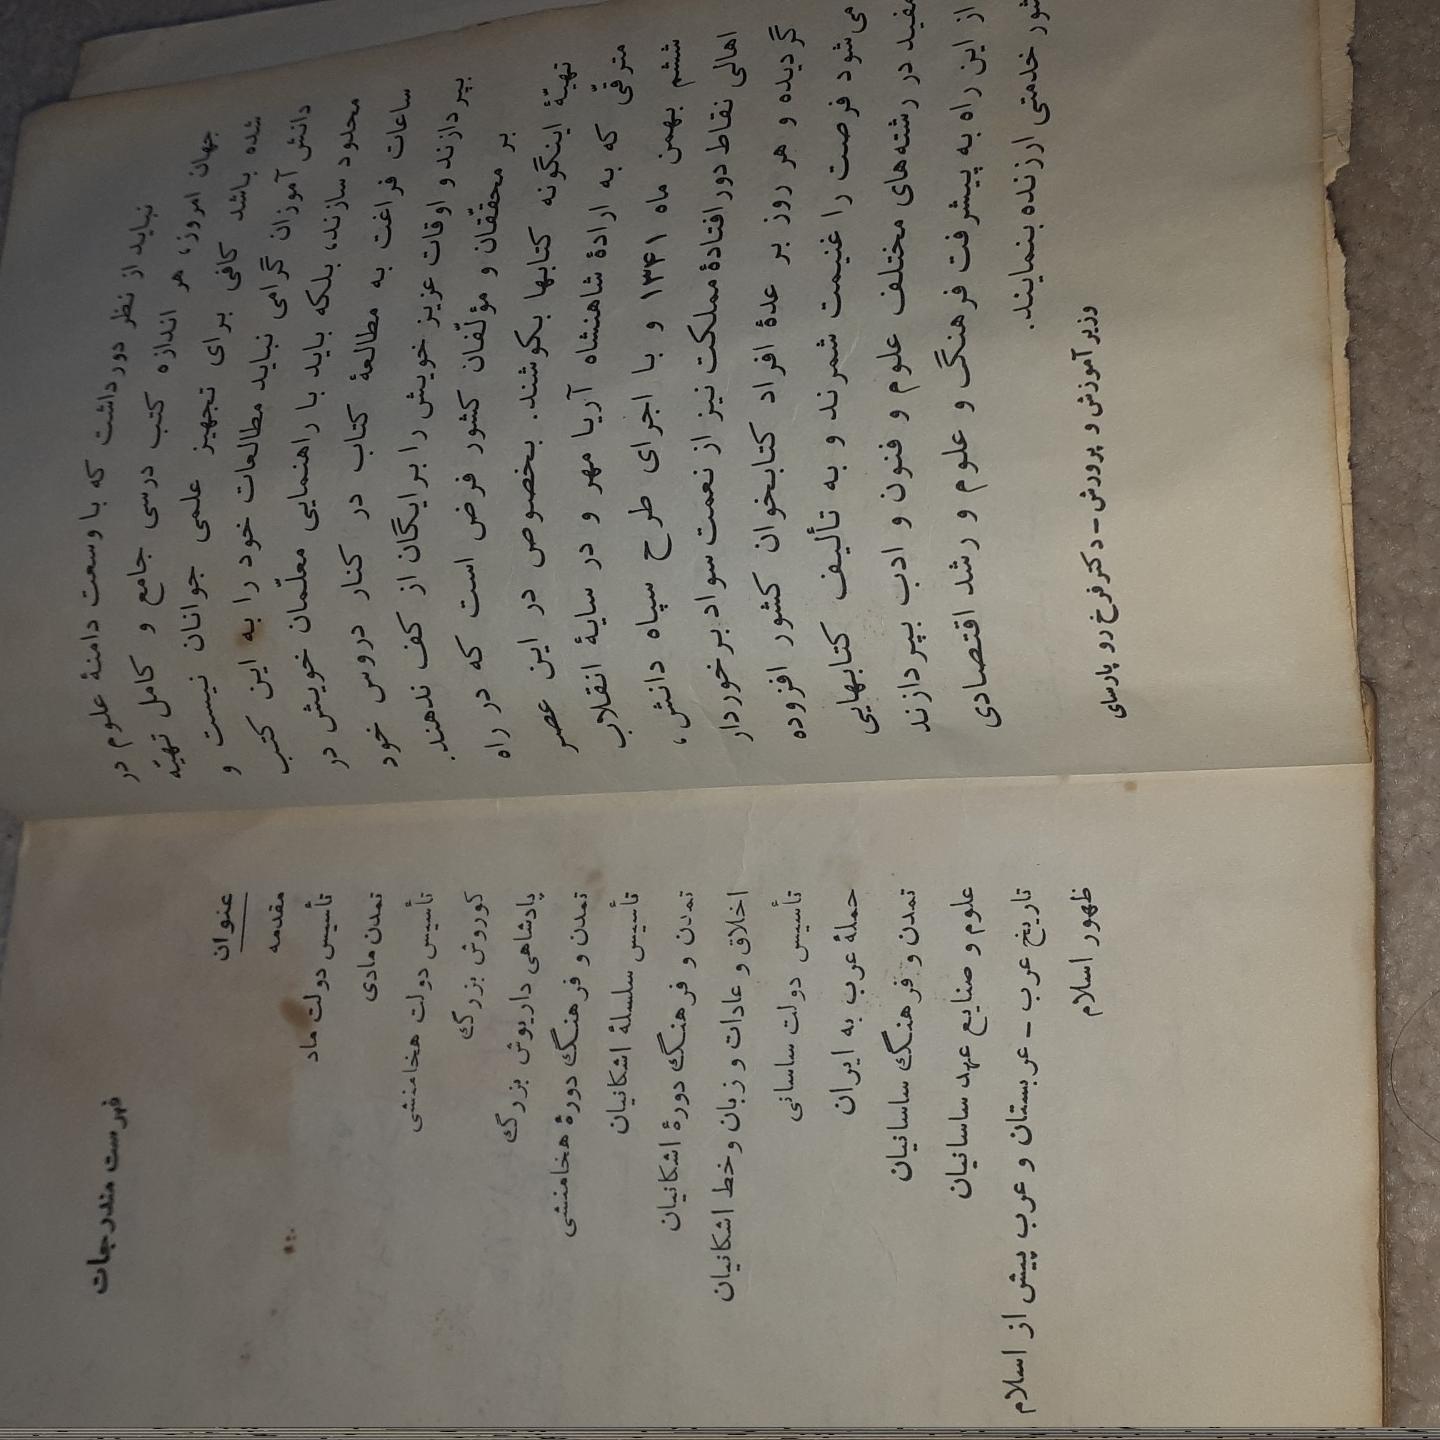 نباید از نظر دور داشت که با وسعت دامنهٔ علوم در
جهان امروز، هر اندازه کتب درسی جامع و کامل تهیّه
شده باشد کافی برای تجهیز علمی جوانان نیست و
دانش آموزان گرامی نباید مطالعات خود را به این کتب
محدود سازند، بلکه باید با راهنمایی معلّمان خویش در
ساعات فراغت به مطالعهٔ کتاب در کنار دروس خود
بپردازند و اوقات عزیز خویش را برایگان از کف ندهند.
بر محقّقان و مؤلّفان کشور فرض است که در راه
تهیّهٔ اینگونه کتابها بکوشند. بخصوص در این عصر
مترقّی که به ارادهٔ شاهنشاه آریا مهر و در سایهٔ انقلاب
ششم بهمن ماه ۱۳۴۱ و با اجرای طرح سپاه دانش،
اهالی نقاط دورافتادهٔ مملکت نیز از نعمت سواد برخوردار
گردیده و هر روز بر عدهٔ افراد کتابخوان کشور افزوده
می‌شود فرصت را غنیمت شمرند و به تألیف کتابهایی
مفید در رشته‌های مختلف علوم و فنون و ادب بپردازند
از این راه به پیشرفت فرهنگ و علوم و رشد اقتصادی
خدمتی ارزنده بنمایند.
وزیر آموزش و پرورش - دکتر فرخ رو پارسای
فهرست مندرجات
عنوان
مقدمه
تأسیس دولت ماد
تمدن مادی
تأسیس دولت هخامنشی
کوروش بزرگ
پادشاهی داریوش بزرگ
تمدن و فرهنگ دورهٔ هخامنشی
تأسیس سلسلهٔ اشکانیان
تمدن و فرهنگ دورهٔ اشکانیان
اخلاق و عادات و زبان و خط اشکانیان
تأسیس دولت ساسانی
حملهٔ عرب به ایران
تمدن و فرهنگ ساسانیان
علوم و صنایع عهد ساسانیان
تاریخ عرب - عربستان و عرب پیش از اسلام
ظهور اسلام